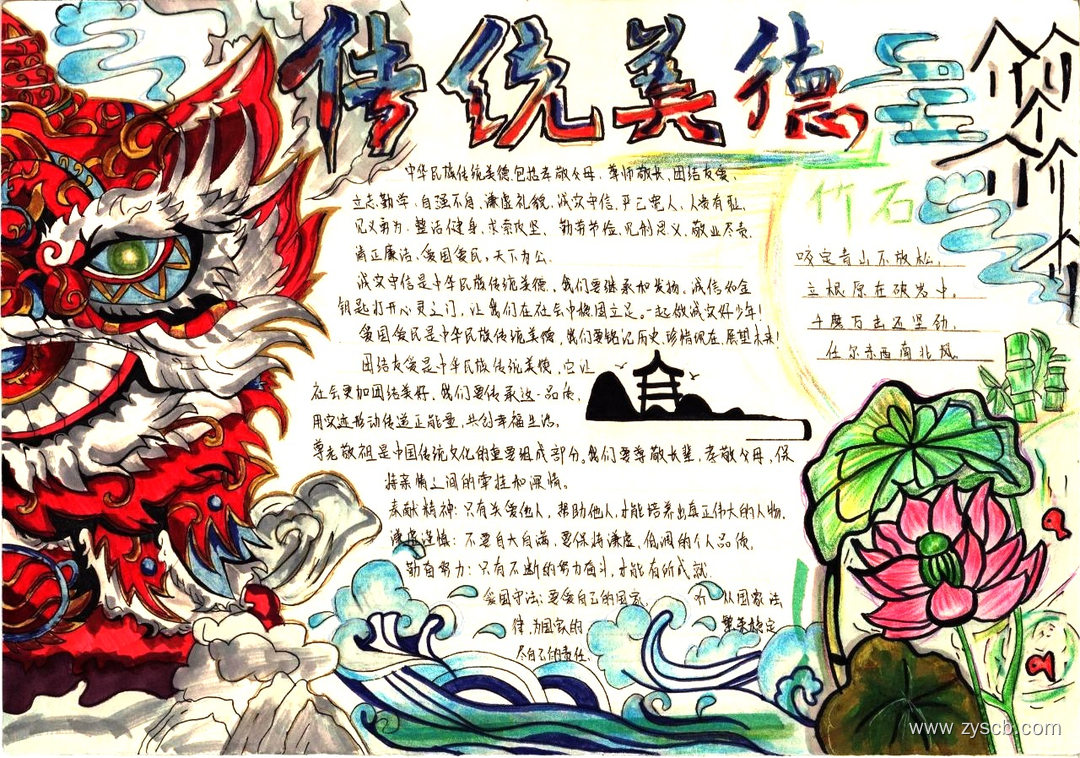 传统美德
中华民族传统美德包括孝敬父母、尊师敬长、团结友爱、
立志勤学、自强不息、谦虚礼貌、诚实守信、严己宽人、人贵有耻、
见义勇为、整洁健身、求索攻坚、勤劳节俭、见利思义、敬业尽责、
清正廉洁、爱国爱民、天下为公。
诚实守信是中华民族传统美德，我们要继承和发扬，诚信的金
钥匙打开心灵之门，让我们在社会中稳固立足。一起做诚实好少年！
爱国爱民是中华民族传统美德，我们要铭记历史，珍惜现在，展望未来！
团结友爱是中华民族传统美德，它让
社会更加团结美好，我们要传承这一品质，
用实际行动传递正能量，共创幸福生活。
尊老敬祖是中国传统文化的重要组成部分。我们要尊敬长辈，孝敬父母，保
持亲情之间的牵挂和深情。
奉献精神：只有关爱他人，帮助他人，才能培养出真正伟大的人物。
谦虚谨慎：不要自大自满，要保持谦虚、低调的个人品质。
勤奋努力：只有不断的努力奋斗，才能有所成就。
爱国守法：要爱自己的国家， 从国家法
律，为国家的 繁荣稳定
尽自己的责任。
竹石
咬定青山不放松，
立根原在破岩中。
千磨万击还坚劲，
任尔东西南北风。
www.zyscb.com